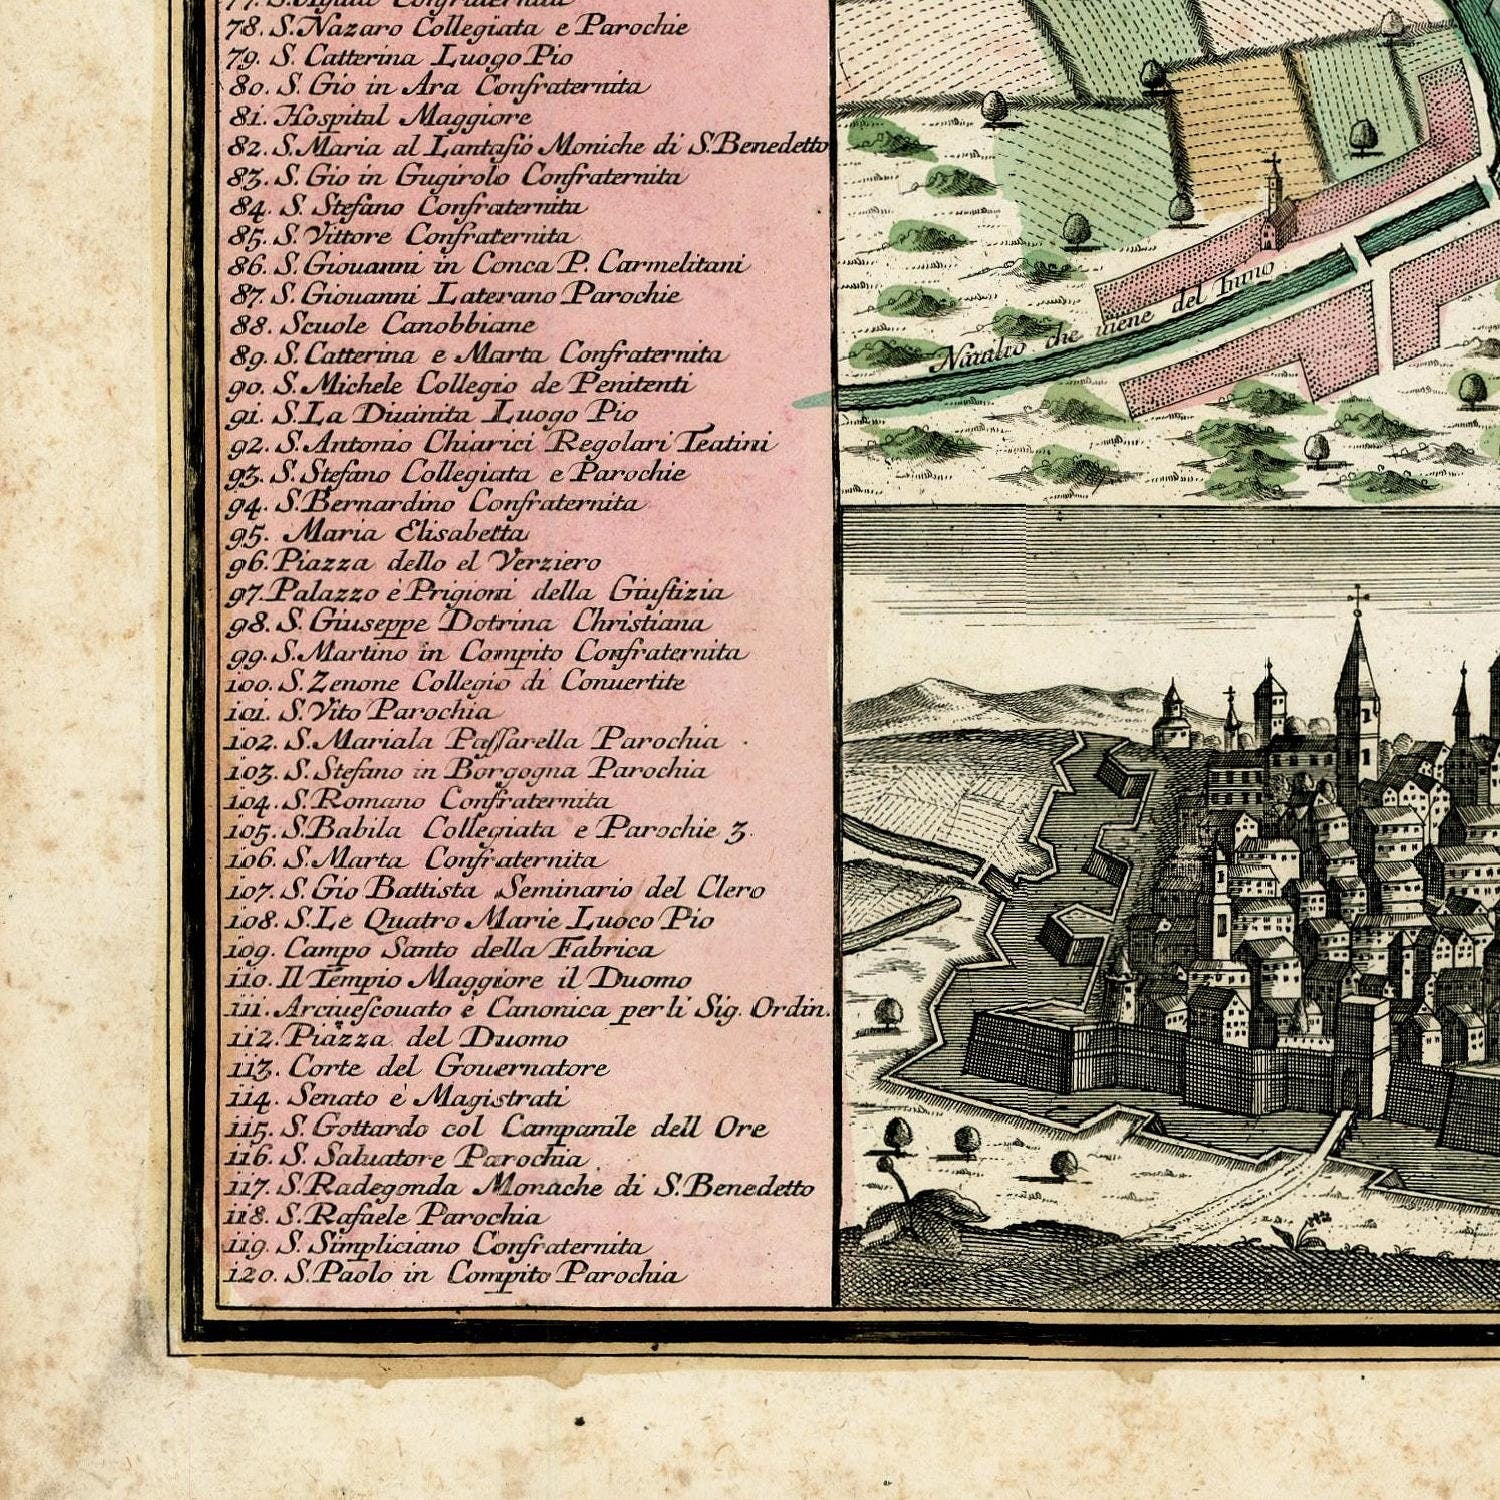 77. S. Agata Confraternita
78. S. Nazaro Collegiata e Parochie
79. S. Catterina Luogo Pio
80. S. Gio in Ara Confraternita
81. Hospital Maggiore
82. S. Maria al Lantasio Moniche di S. Benedetto
83. S. Gio in Gugirolo Confraternita
84. S. Stefano Confraternita
85. S. Vittore Confraternita
86. S. Giouanni in Conca P. Carmelitani
87. S. Giouanni Laterano Parochie
88. Scuole Canobbiane
89. S. Catterina e Marta Confraternita
90. S. Michele Collegio de Penitenti
91. S. La Diuinita Luogo Pio
92. S. Antonio Chiarici Regolari Teatini
93. S. Stefano Collegiata e Parochie
94. S. Bernardino Confraternita
95. Maria Elisabetta
96. Piazza dello el Verziero
97. Palazzo è Prigioni della Giustizia
98. S. Giuseppe Dotrina Christiana
99. S. Martino in Compito Confraternita
100. S. Zenone Collegio di Conuertite
101. S. Vito Parochia
102. S. Mariala Paſſarella Parochia
103. S. Stefano in Borgogna Parochia
104. S. Romano Confraternita
105. S. Babila Collegiata e Parochie 3.
106. S. Marta Confraternita
107. S. Gio Battista Seminario del Clero
108. S. Le Quatro Marie Luoco Pio
109. Campo Santo della Fabrica
110. Il Tempio Maggiore il Duomo
111. Arciuescouato è Canonica per li Sig. Ordin.
112. Piazza del Duomo
113. Corte del Gouernatore
114. Senato è Magistrati
115. S. Gottardo col Campanile dell Ore
116. S. Saluatore Parochia
117. S. Radegonda Monache di S. Benedetto
118. S. Rafaele Parochia
119. S. Simpliciano Confraternita
120. S. Paolo in Compito Parochia
Nauilio che uiene del Tinno